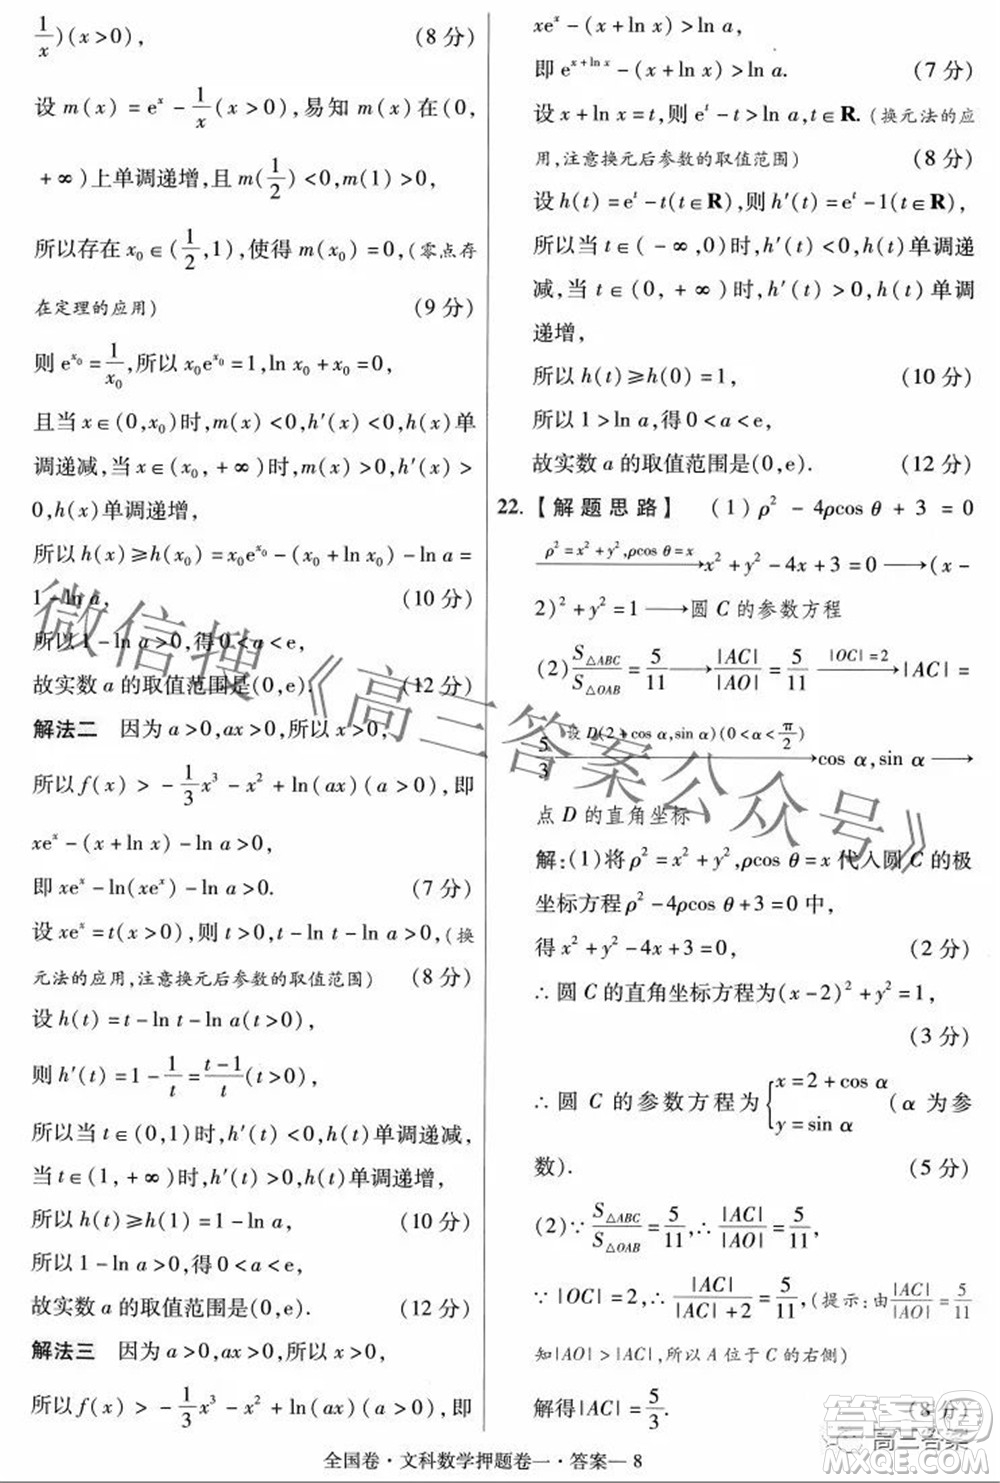 1/x)(x>0), (8分)
设 m(x)=eˣ-1/x(x>0),易知 m(x)在(0,
+∞)上单调递增,且 m(1/2)<0,m(1)>0,
所以存在 x₀∈(1/2,1),使得 m(x₀)=0,(零点存
在定理的应用) (9分)
则 e^{x₀}=1/x₀,所以 x₀e^{x₀}=1,ln x₀+x₀=0,
且当 x∈(0,x₀)时,m(x)<0,h′(x)<0,h(x)单
调递减,当 x∈(x₀,+∞)时,m(x)>0,h′(x)>
0,h(x)单调递增,
所以 h(x)≥h(x₀)=x₀e^{x₀}-(x₀+ln x₀)-ln a=
1-ln a, (10分)
所以 1-ln a>0,得 0<a<e,
故实数 a 的取值范围是(0,e). (12分)
解法二 因为 a>0,ax>0,所以 x>0,
所以 f(x)>-1/3x³-x²-x+ln(ax)+(x>0),即
xeˣ-(x+ln x)-ln a>0,
即 xeˣ-ln(xeˣ)-ln a>0. (7分)
设 xeˣ=t(x>0),则 t>0,t-ln t-ln a>0,(换
元法的应用,注意换元后参数的取值范围) (8分)
设 h(t)=t-ln t-ln a(t>0),
则 h′(t)=1-1/t=(t-1)/t(t>0),
所以当 t∈(0,1)时,h′(t)<0,h(t)单调递减,
当 t∈(1,+∞)时,h′(t)>0,h(t)单调递增,
所以 h(t)≥h(1)=1-ln a, (10分)
所以 1-ln a>0,得 0<a<e,
故实数 a 的取值范围是(0,e). (12分)
解法三 因为 a>0,ax>0,所以 x>0,
所以 f(x)>-1/3x³-x²-x+ln(ax)(x>0),即
xeˣ-(x+ln x)>ln a,
即 e^{x+ln x}-(x+ln x)>ln a. (7分)
设 x+ln x=t,则 eᵗ-t>ln a,t∈R.(换元法的应
用,注意换元后参数的取值范围) (8分)
设 h(t)=eᵗ-t(t∈R),则 h′(t)=eᵗ-1(t∈R),
所以当 t∈(-∞,0)时,h′(t)<0,h(t)单调递
减,当 t∈(0,+∞)时,h′(t)>0,h(t)单调
递增,
所以 h(t)≥h(0)=1, (10分)
所以 1>ln a,得 0<a<e,
故实数 a 的取值范围是(0,e). (12分)
22.【解题思路】 (1)ρ²-4ρcos θ+3=0
ρ²=x²+y²,ρcos θ=x→x²+y²-4x+3=0→(x-
2)²+y²=1→圆 C 的参数方程
(2)S△ABC/S△OAB=5/11→|AC|/|AO|=5/11 |OC|=2→|AC|=
5/3 设 D(2+cos α,sin α)(0<α<π/2)→cos α,sin α→
点 D 的直角坐标
解:(1)将 ρ²=x²+y²,ρcos θ=x 代入圆 C 的极
坐标方程 ρ²-4ρcos θ+3=0 中,
得 x²+y²-4x+3=0, (2分)
∴圆 C 的直角坐标方程为(x-2)²+y²=1,
(3分)
∴圆 C 的参数方程为{x=2+cos α y=sin α (α 为参
数). (5分)
(2)∵S△ABC/S△OAB=5/11,∴|AC|/|AO|=5/11,
∵|OC|=2,∴|AC|/(|AC|+2)=5/11,(提示:由|AC|/|AO|=5/11
知|AO|>|AC|,所以 A 位于 C 的右侧)
解得|AC|=5/3. (8分)
全国卷·文科数学押题卷一·答案—8
微信搜《高三答案公众号》
高三答案